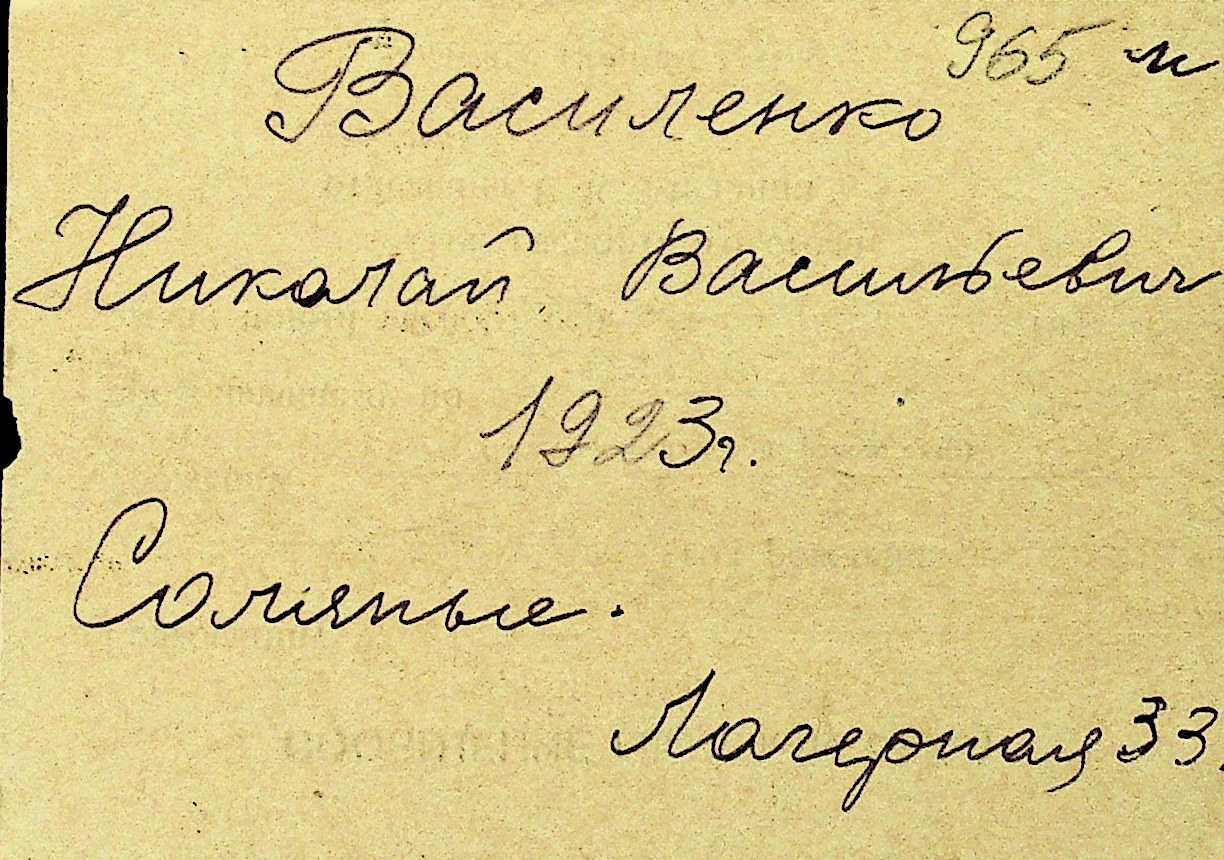 965 м
Василенко
Николай Васильевич
1923г.
Соляные.
Лагерная 33.